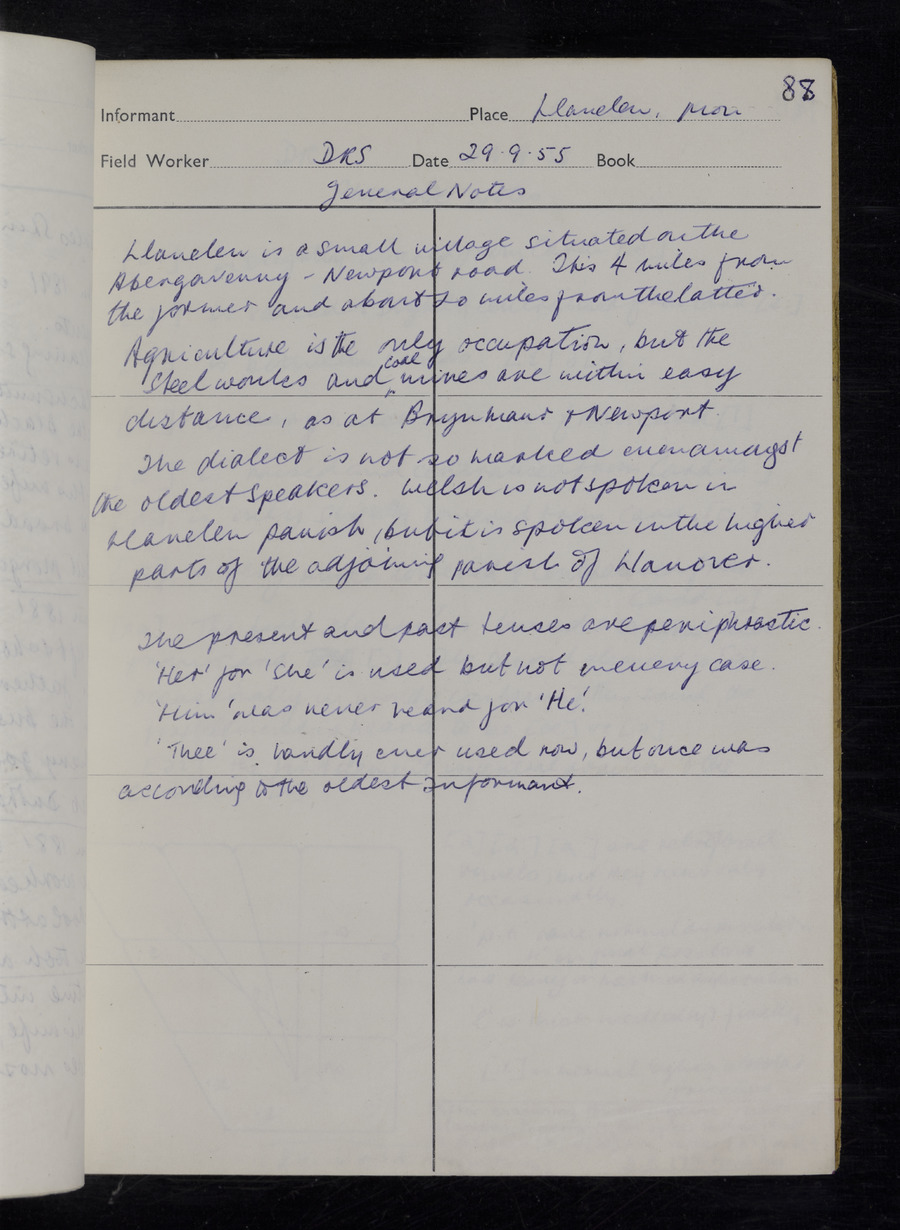 88
Informant Place Llanelen, Mon
Field Worker DRS Date 29.9.55 Book
General Notes
Llanelen is a small village situated on the
Abergavenny - Newport road. This 4 miles from
the former and about 20 miles from the latter.
Agriculture is the only occupation, but the
Steel works and coal mines are within easy
distance, as at Brynmawr & Newport.
The dialect is not so marked even amongst
the oldest speakers. Welsh is not spoken in
Llanelen parish, but it is spoken in the higher
parts of the adjoining parish of Llanover.
The present and past tenses are periphrastic.
'Her' for 'She' is used but not in every case.
'Him' was never heard for 'He'.
'Thee' is hardly ever used now, but once was
according to the oldest informant.